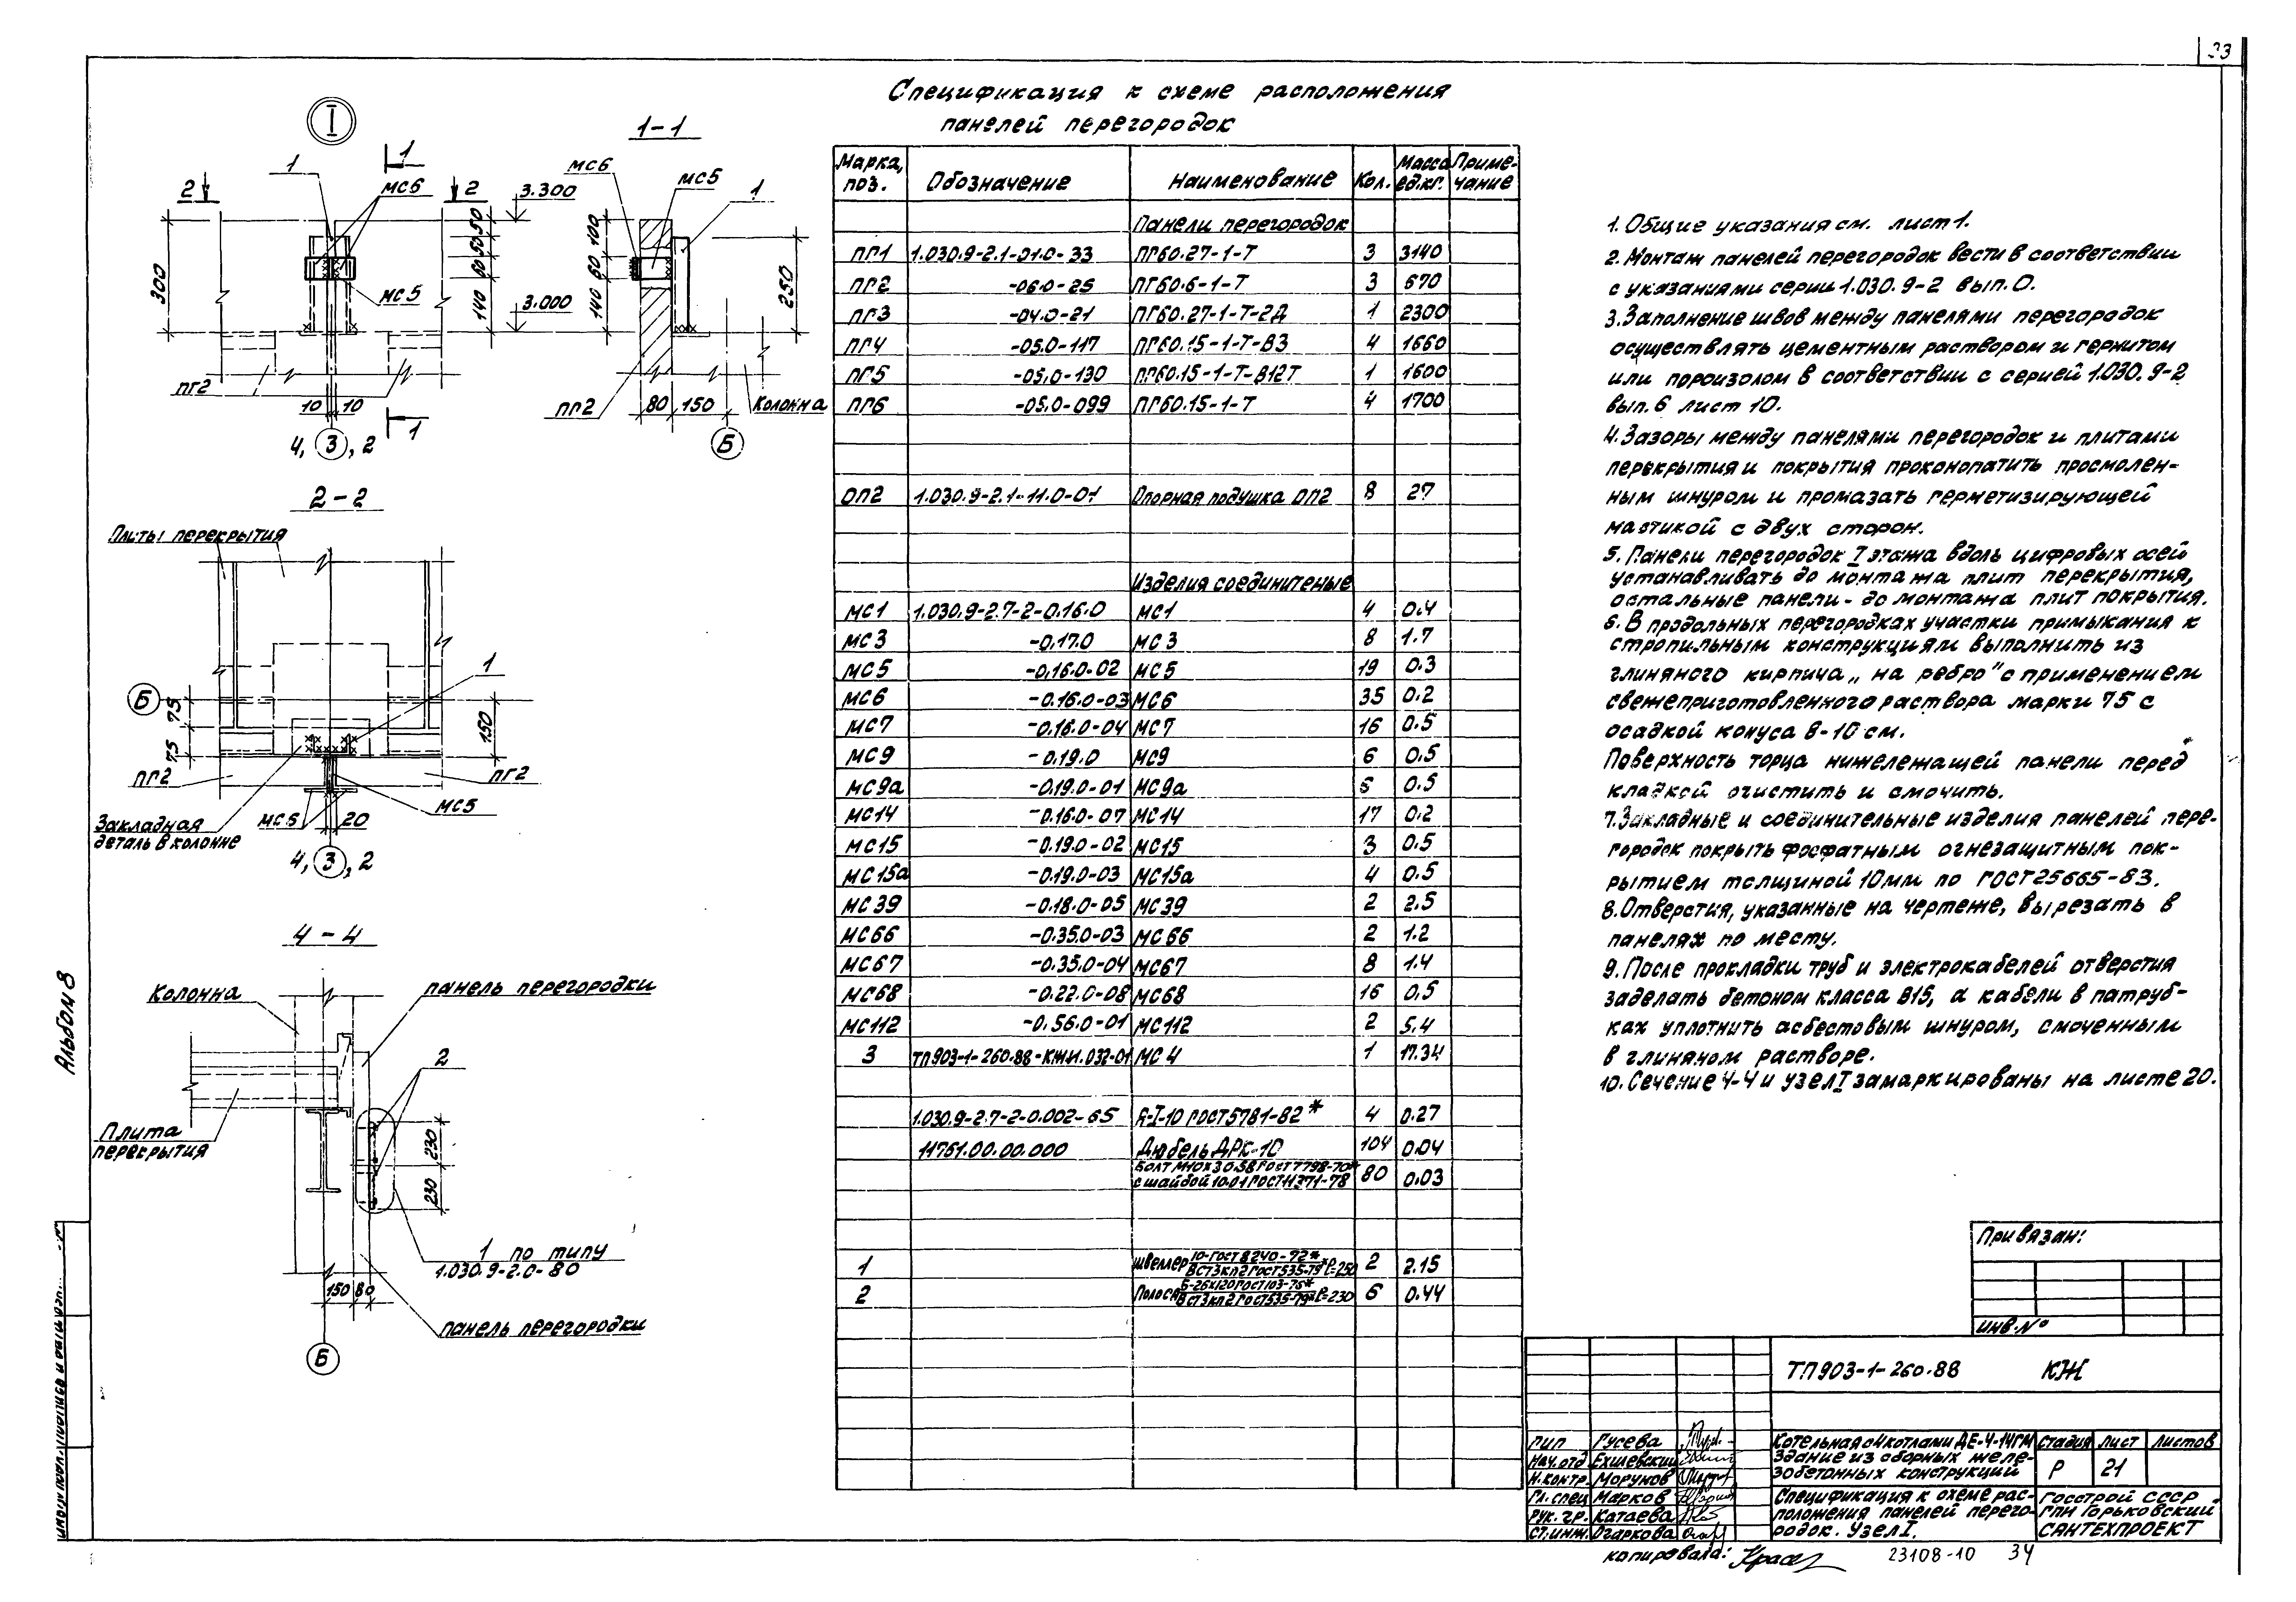 33
Спецификация к схеме расположения
панелей перегородок
I
1
1
2
2
МС6
МС5
3.300
3.000
300
50
50
60
140
ПГ2
10
10
4, 3, 2
1
1-1
МС6
МС5
1
100
60
140
250
ПГ2
80
150
Колонна
Б
2-2
Плиты перекрытия
1
Б
75
75
150
ПГ2
ПГ2
МС5
МС6
20
Закладная
деталь в колонне
4, 3, 2
4-4
Колонна
панель перегородки
2
Плита
перекрытия
230
230
1 по типу
1.030.9-2.0-80
150
80
панель перегородки
Б
Альбом 8
Марка, поз. Обозначение Наименование Кол. Масса ед.кг. Примечание
Панели перегородок
ПГ1 1.030.9-2.1-01.0-33 ПГ60.27-1-Т 3 3140
ПГ2 -06.0-25 ПГ60.6-1-Т 3 670
ПГ3 -04.0-21 ПГ60.27-1-Т-2Д 1 2300
ПГ4 -05.0-117 ПГ60.15-1-Т-В3 4 1660
ПГ5 -05.0-130 ПГ60.15-1-Т-В12Т 1 1600
ПГ6 -05.0-099 ПГ60.15-1-Т 4 1700
ОП2 1.030.9-2.1-11.0-01 Опорная подушка ОП2 8 27
Изделия соединитеные
МС1 1.030.9-2.7-2-0.16.0 МС1 4 0.4
МС3 -0.17.0 МС3 8 1.7
МС5 -0.16.0-02 МС5 19 0.3
МС6 -0.16.0-03 МС6 35 0.2
МС7 -0.16.0-04 МС7 16 0.5
МС9 -0.19.0 МС9 6 0.5
МС9а -0.19.0-01 МС9а 0.5
МС14 -0.16.0-07 МС14 17 0.2
МС15 -0.19.0-02 МС15 3 0.5
МС15а -0.19.0-03 МС15а 4 0.5
МС39 -0.18.0-05 МС39 2 2.5
МС66 -0.35.0-03 МС66 2 1.2
МС67 -0.35.0-04 МС67 8 1.4
МС68 -0.22.0-08 МС68 16 0.5
МС112 -0.56.0-01 МС112 2 5.4
3 ТП903-1-260.88-КЖИ.032-01 МС4 1 17.34
1.030.9-2.7-2-0.002-65 А-I-10 ГОСТ5781-82* 4 0.27
11761.00.00.000 Дюбель ДРК-10 104 0.04
Болт М10х30.58 ГОСТ 7798-70*
с шайбой 10.01 ГОСТ 11371-78 80 0.03
1 Швеллер 10-ГОСТ8240-72* / ВСТ3кп2 ГОСТ535-79* ℓ=250 2 2.15
2 Полоса Б-26х120 ГОСТ103-76* / ВСТ3кп2 ГОСТ535-79* ℓ=230 6 0.44
1. Общие указания см. лист 1.
2. Монтаж панелей перегородок вести в соответствии
с указаниями серии 1.030.9-2 вып.0.
3. Заполнение швов между панелями перегородок
осуществлять цементным раствором и гернитом
или пороизолом в соответствии с серией 1.030.9-2
вып.6 лист 10.
4. Зазоры между панелями перегородок и плитами
перекрытия и покрытия проконопатить просмолен-
ным шнуром и промазать герметизирующей
мастикой с двух сторон.
5. Панели перегородок I этажа вдоль цифровых осей
устанавливать до монтажа плит перекрытия,
остальные панели - до монтажа плит покрытия.
6. В продольных перегородках участки примыкания к
стропильным конструкциям выполнить из
глиняного кирпича „на ребро" с применением
свежеприготовленного раствора марки 75 с
осадкой конуса 8-10 см.
Поверхность торца нижележащей панели перед
кладкой очистить и смочить.
7. Закладные и соединительные изделия панелей пере-
городок покрыть фосфатным огнезащитным пок-
рытием толщиной 10мм по ГОСТ 25665-83.
8. Отверстия, указанные на чертеже, вырезать в
панелях по месту.
9. После прокладки труб и электрокабелей отверстия
заделать бетоном класса В15, а кабели в патруб-
ках уплотнить асбестовым шнуром, смоченным
в глиняном растворе.
10. Сечение 4-4 и узел I замаркированы на листе 20.
Привязан:
Инв.№
ТП903-1-260.88 КЖ
ГИП Гусева
Нач.отд Ехилевский
Н.контр. Морунов
Гл.спец Марков
Рук.гр. Катаева
Ст.инж. Огаркова
Котельная с 4 котлами ДЕ-4-14ГМ
Здание из сборных желе-
зобетонных конструкций
Стадия Лист Листов
Р 21
Спецификация к схеме рас-
положения панелей перего-
родок. Узел I.
Госстрой СССР
ГПИ Горьковский
САНТЕХПРОЕКТ
копировала:
23108-10 34